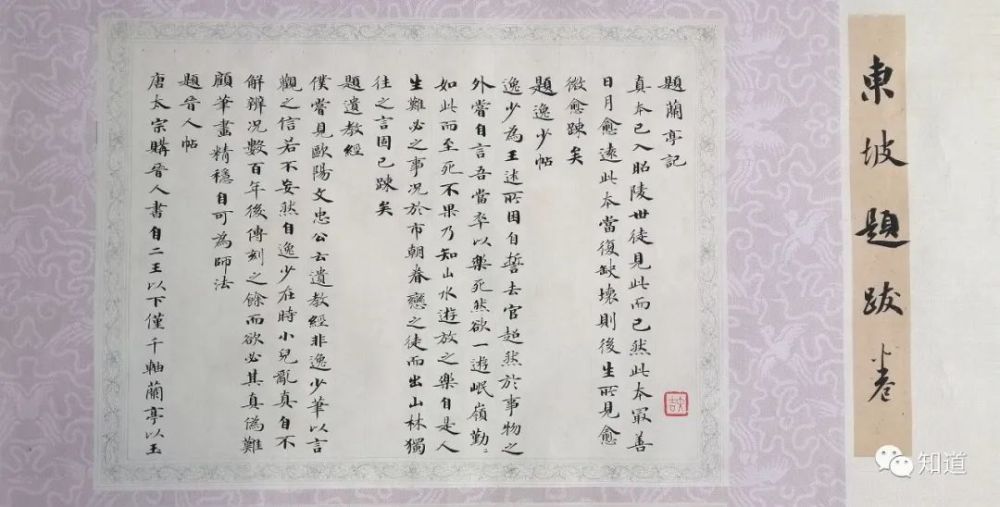 東坡題跋上卷
題蘭亭記
真本已入昭陵世徒見此而已然此本最善
日月愈遠此本當復缺壞則後生所見愈
微愈踈矣
題逸少帖
逸少為王述所困自誓去官超然於事物之
外嘗自言吾當卒以樂死然欲一遊岷嶺勤〻
如此而至死不果乃知山水遊放之樂自是人
生難必之事况於市朝眷戀之徒而出山林獨
往之言固已踈矣
題遺教經
僕嘗見歐陽文忠公云遺教經非逸少筆以言
觀之信若不妄然自逸少在時小兒亂真自不
解辨况數百年後傳刻之餘而欲必其真偽難
顧筆畫精穩自可為師法
題晉人帖
唐太宗購晉人書自二王以下僅千軸蘭亭以玉
知道